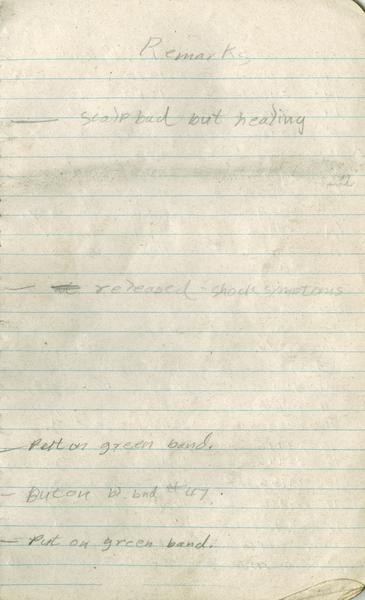 Remarks
— scalp bad but healing
— released - shock symptoms
— Put on green band.
— Put on b. bnd #47.
— Put on green band.